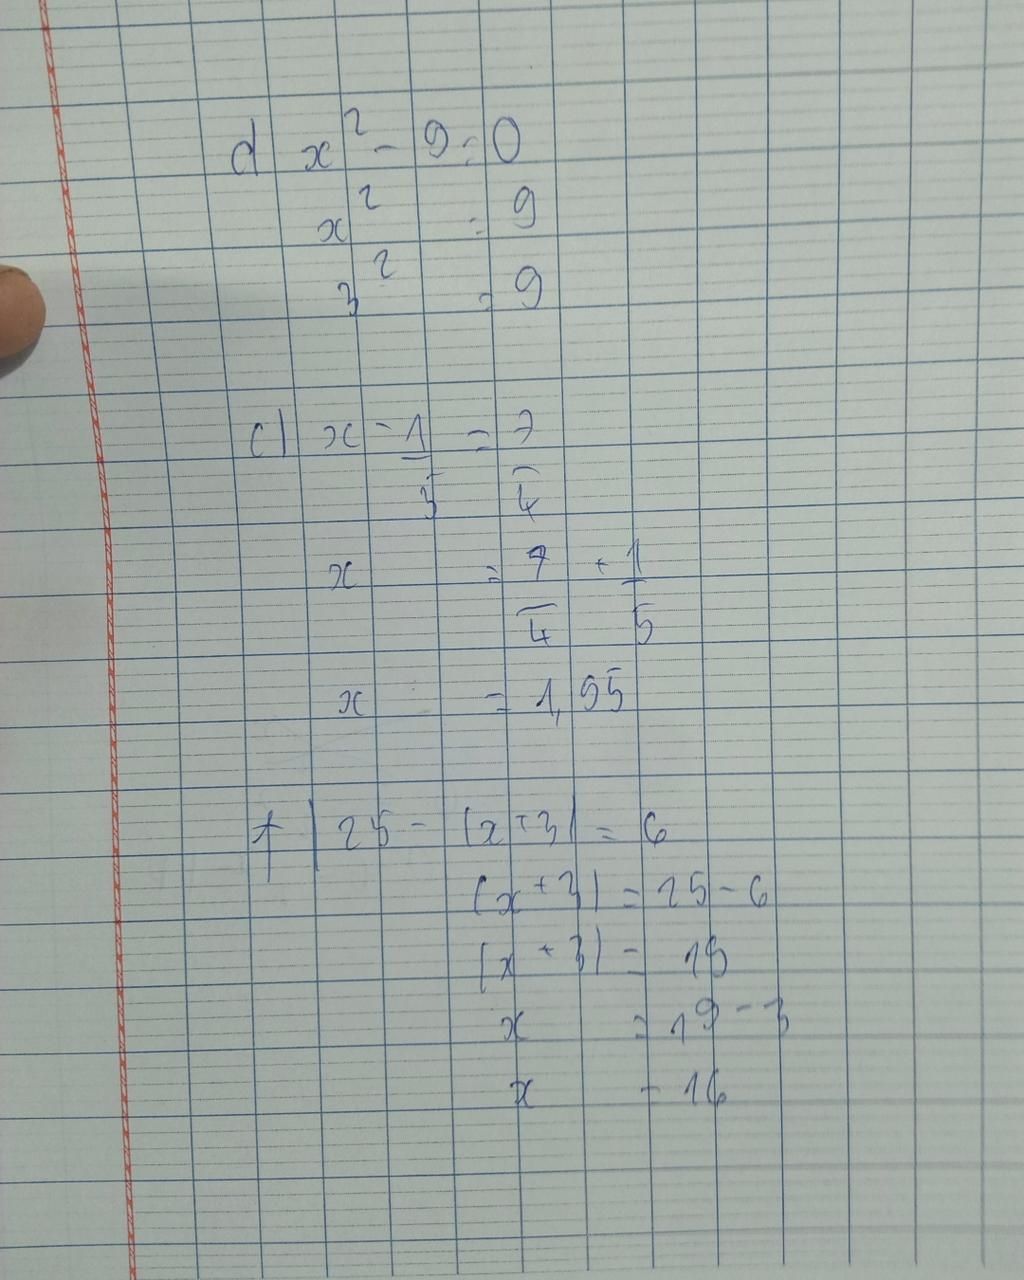 d) x² - 9 = 0
x² = 9
3² = 9
c) x - 1/5 = 7/4
x = 7/4 + 1/5
x = 1,95
f) 25 - (x+3) = 6
(x+3) = 25 - 6
(x+3) = 19
x = 19 - 3
x = 16